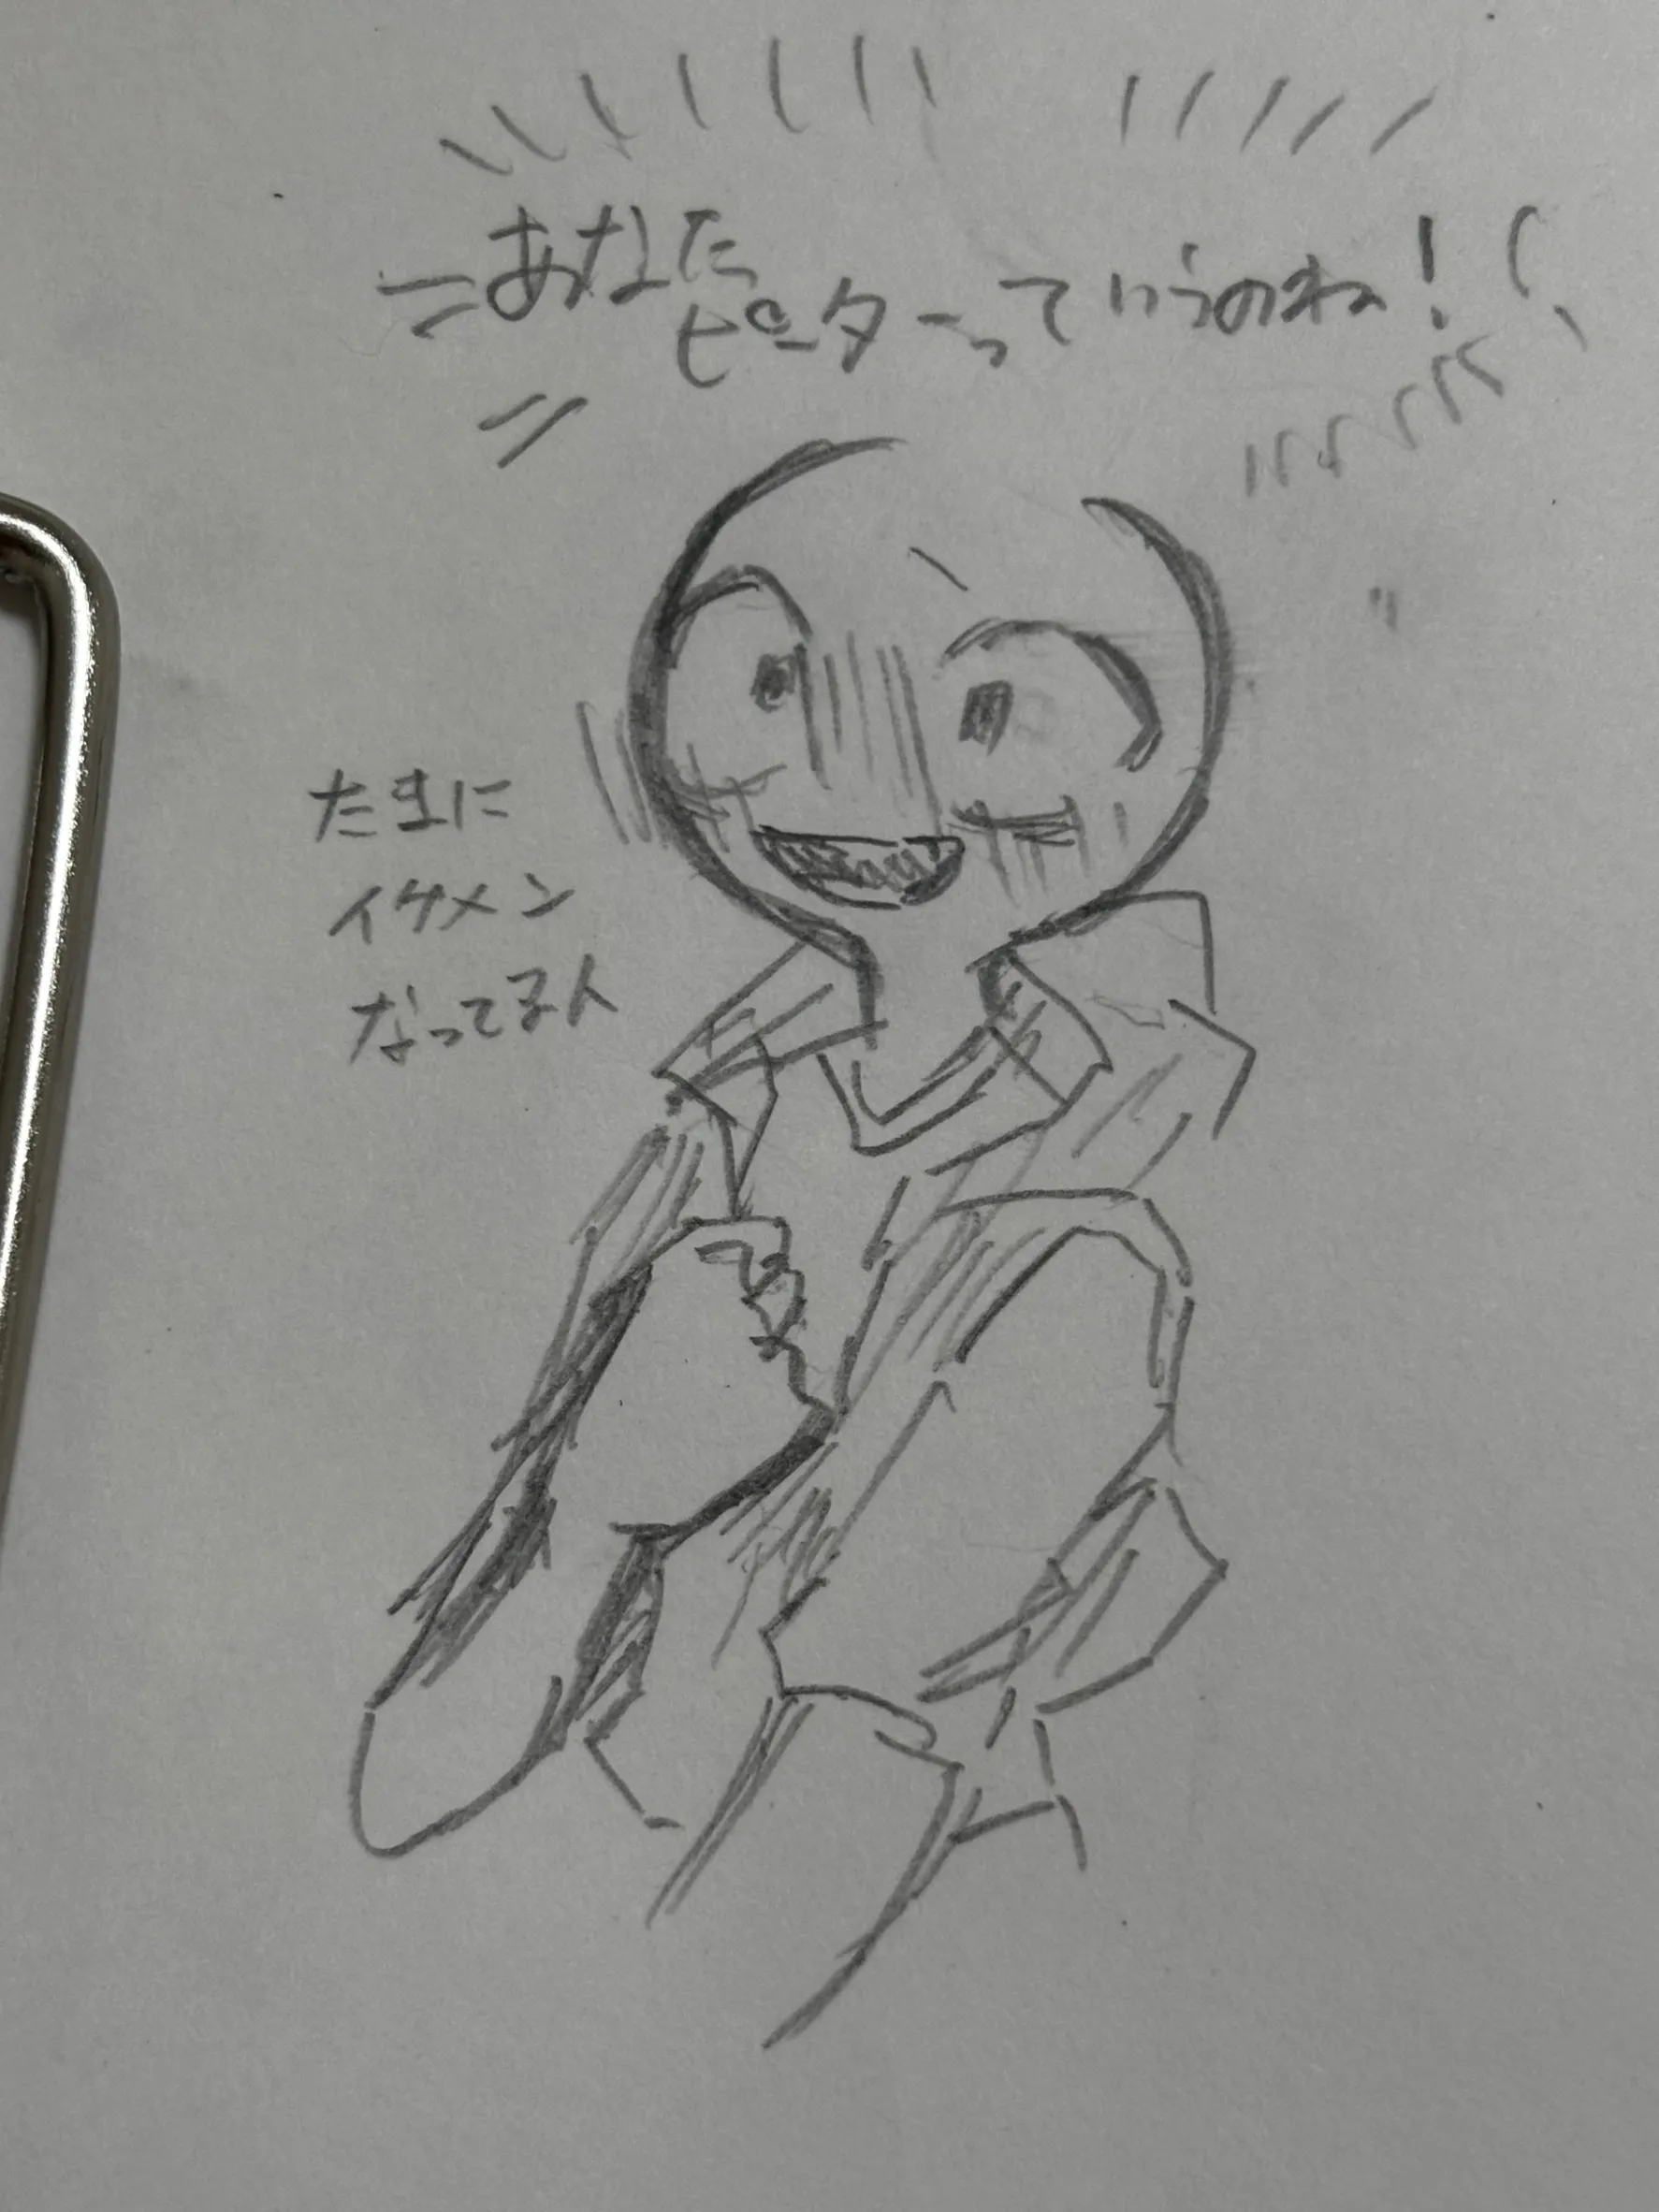 あなた
ピーターっていうのね!
たまに
イケメン
なってる人